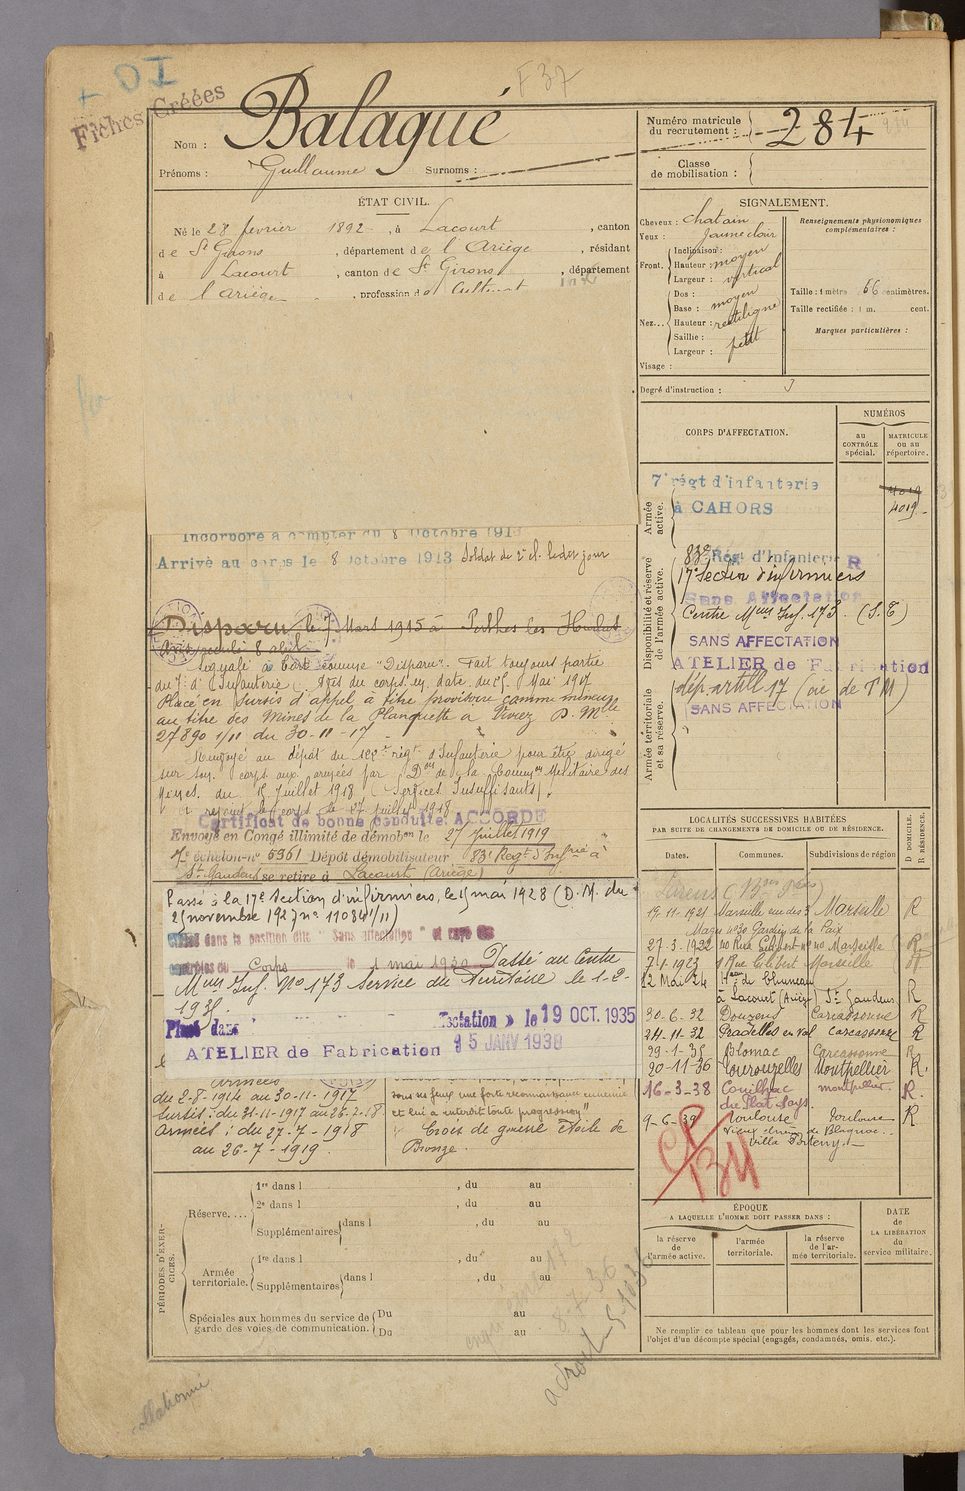 + DI
Fiches Créées
F 37
Nom : Balagué
Prénoms : Guillaume Surnoms :
Numéro matricule du recrutement : 284
Classe de mobilisation :
ÉTAT CIVIL.
Né le 28 février 1892, à Lacourt, canton
de St Girons, département de l'Ariège, résidant
à Lacourt, canton de St Girons, département
de l'Ariège, profession de Cultivat
SIGNALEMENT.
Cheveux : chatain
Yeux : jaune clair
Front. Inclinaison :
Hauteur : moyen
Largeur : vertical
Nez... Dos : moyen
Base :
Hauteur : rectiligne
Saillie :
Largeur : petit
Visage :
Renseignements physionomiques complémentaires :
Taille : 1 mètre 66 centimètres.
Taille rectifiée : 1 m. cent.
Marques particulières :
Degré d'instruction : 3
CORPS D'AFFECTATION.
NUMÉROS
au CONTRÔLE spécial.
MATRICULE ou au répertoire.
Armée active.
7e régt d'infanterie
à CAHORS
4019
4019
Disponibilité et réserve de l'armée active.
83e Régt d'Infanterie R
17e Section d'infirmiers
Sans Affectation
Centre Mm Inf. 173 (S.T)
SANS AFFECTATION
ATELIER de Fabrication
Armée territoriale et sa réserve.
SANS AFFECTATION
Incorporé à compter du 8 Octobre 1913
Arrivé au corps le 8 Octobre 1913 Soldat de 2e cl. led. jour
Disparu le 7 Mars 1915 à Perthes les Hurlus
Avis 8 avril
à tort comme "Disparu". Fait toujours partie
du 7e d'Infanterie. Avis du corps en date du 25 Mai 1917
Placé en sursis d'appel à titre provisoire comme mineur
au titre des Mines de la Planquette à Viviez D. Mlle
27890 1/11 du 30-11-17
au dépôt du régt d'Infanterie pour être dirigé
sur son corps aux armées par Don de la Common Militaire des
Mines du Juillet 1918 (Services Insuffisants).
A rejoint le corps le 27 juillet 1918
Certificat de bonne conduite ACCORDÉ
Envoyé en Congé illimité de démobon le 27 juillet 1919
7e échelon n° 5361 Dépôt démobilisateur 83e Régt d'Infrie à
St Gaudens se retire à Lacourt (Ariège)
Passé à la 17e Section d'infirmiers, le 1 mai 1928 (D.M. du
25 novembre 1927 n° 11084 1/11)
dans la position dite "Sans affectation" et rayé des
contrôles du Corps le 1 mai 1930 Passé au Centre
Mm Inf. N° 173 Service du Territoire le 1-2-
1935.
Placé dans
le 19 OCT. 1935
ATELIER de Fabrication 15 JANV 1938
Armées
du 2-8-1914 au 30-11-1917
Sursis : du 31-11-1917 au 26-7-18
Armées : du 27-7-1918
au 26-7-1919.
sous un feux une forte reconnaissance ennemie
et lui a interdit toute progression"
Croix de guerre Étoile de
Bronze.
LOCALITÉS SUCCESSIVES HABITÉES
PAR SUITE DE CHANGEMENTS DE DOMICILE OU DE RÉSIDENCE.
D DOMICILE. R RÉSIDENCE.
Dates. Communes. Subdivisions de région
19-11-1921 Marseille rue des 3 Marseille R
Mages n° 30 Gardien de la Paix
27-3-1922 Marseille R
7-1-1923 1 Rue Colibert Marseille R
12 Mai 24
à Lacourt (Ariège) St Gaudens R
30-6-32 Douzens Carcassonne R
24-11-32 Pradelles en Val Carcassonne R
29-1-35 Blomac Carcassonne R
20-11-36 Tourouzelles Montpellier R.
16-3-38 Couilhac Montpellier R.
9-6-39 Toulouse Toulouse R
Vieux chemin de Blagnac
Villa
CP
134
PÉRIODES D'EXERCICES.
Réserve....
1re dans l , du au
2e dans l , du au
Supplémentaires dans l , du au
Armée territoriale.
1re dans l , du au
Supplémentaires dans l , du au
Spéciales aux hommes du service de garde des voies de communication.
Du au
Du au
ÉPOQUE
A LAQUELLE L'HOMME DOIT PASSER DANS :
la réserve de l'armée active.
l'armée territoriale.
la réserve de l'armée territoriale.
DATE de LA LIBÉRATION du service militaire.
Ne remplir ce tableau que pour les hommes dont les services font
l'objet d'un décompte spécial (engagés, condamnés, omis, etc.).
collationné